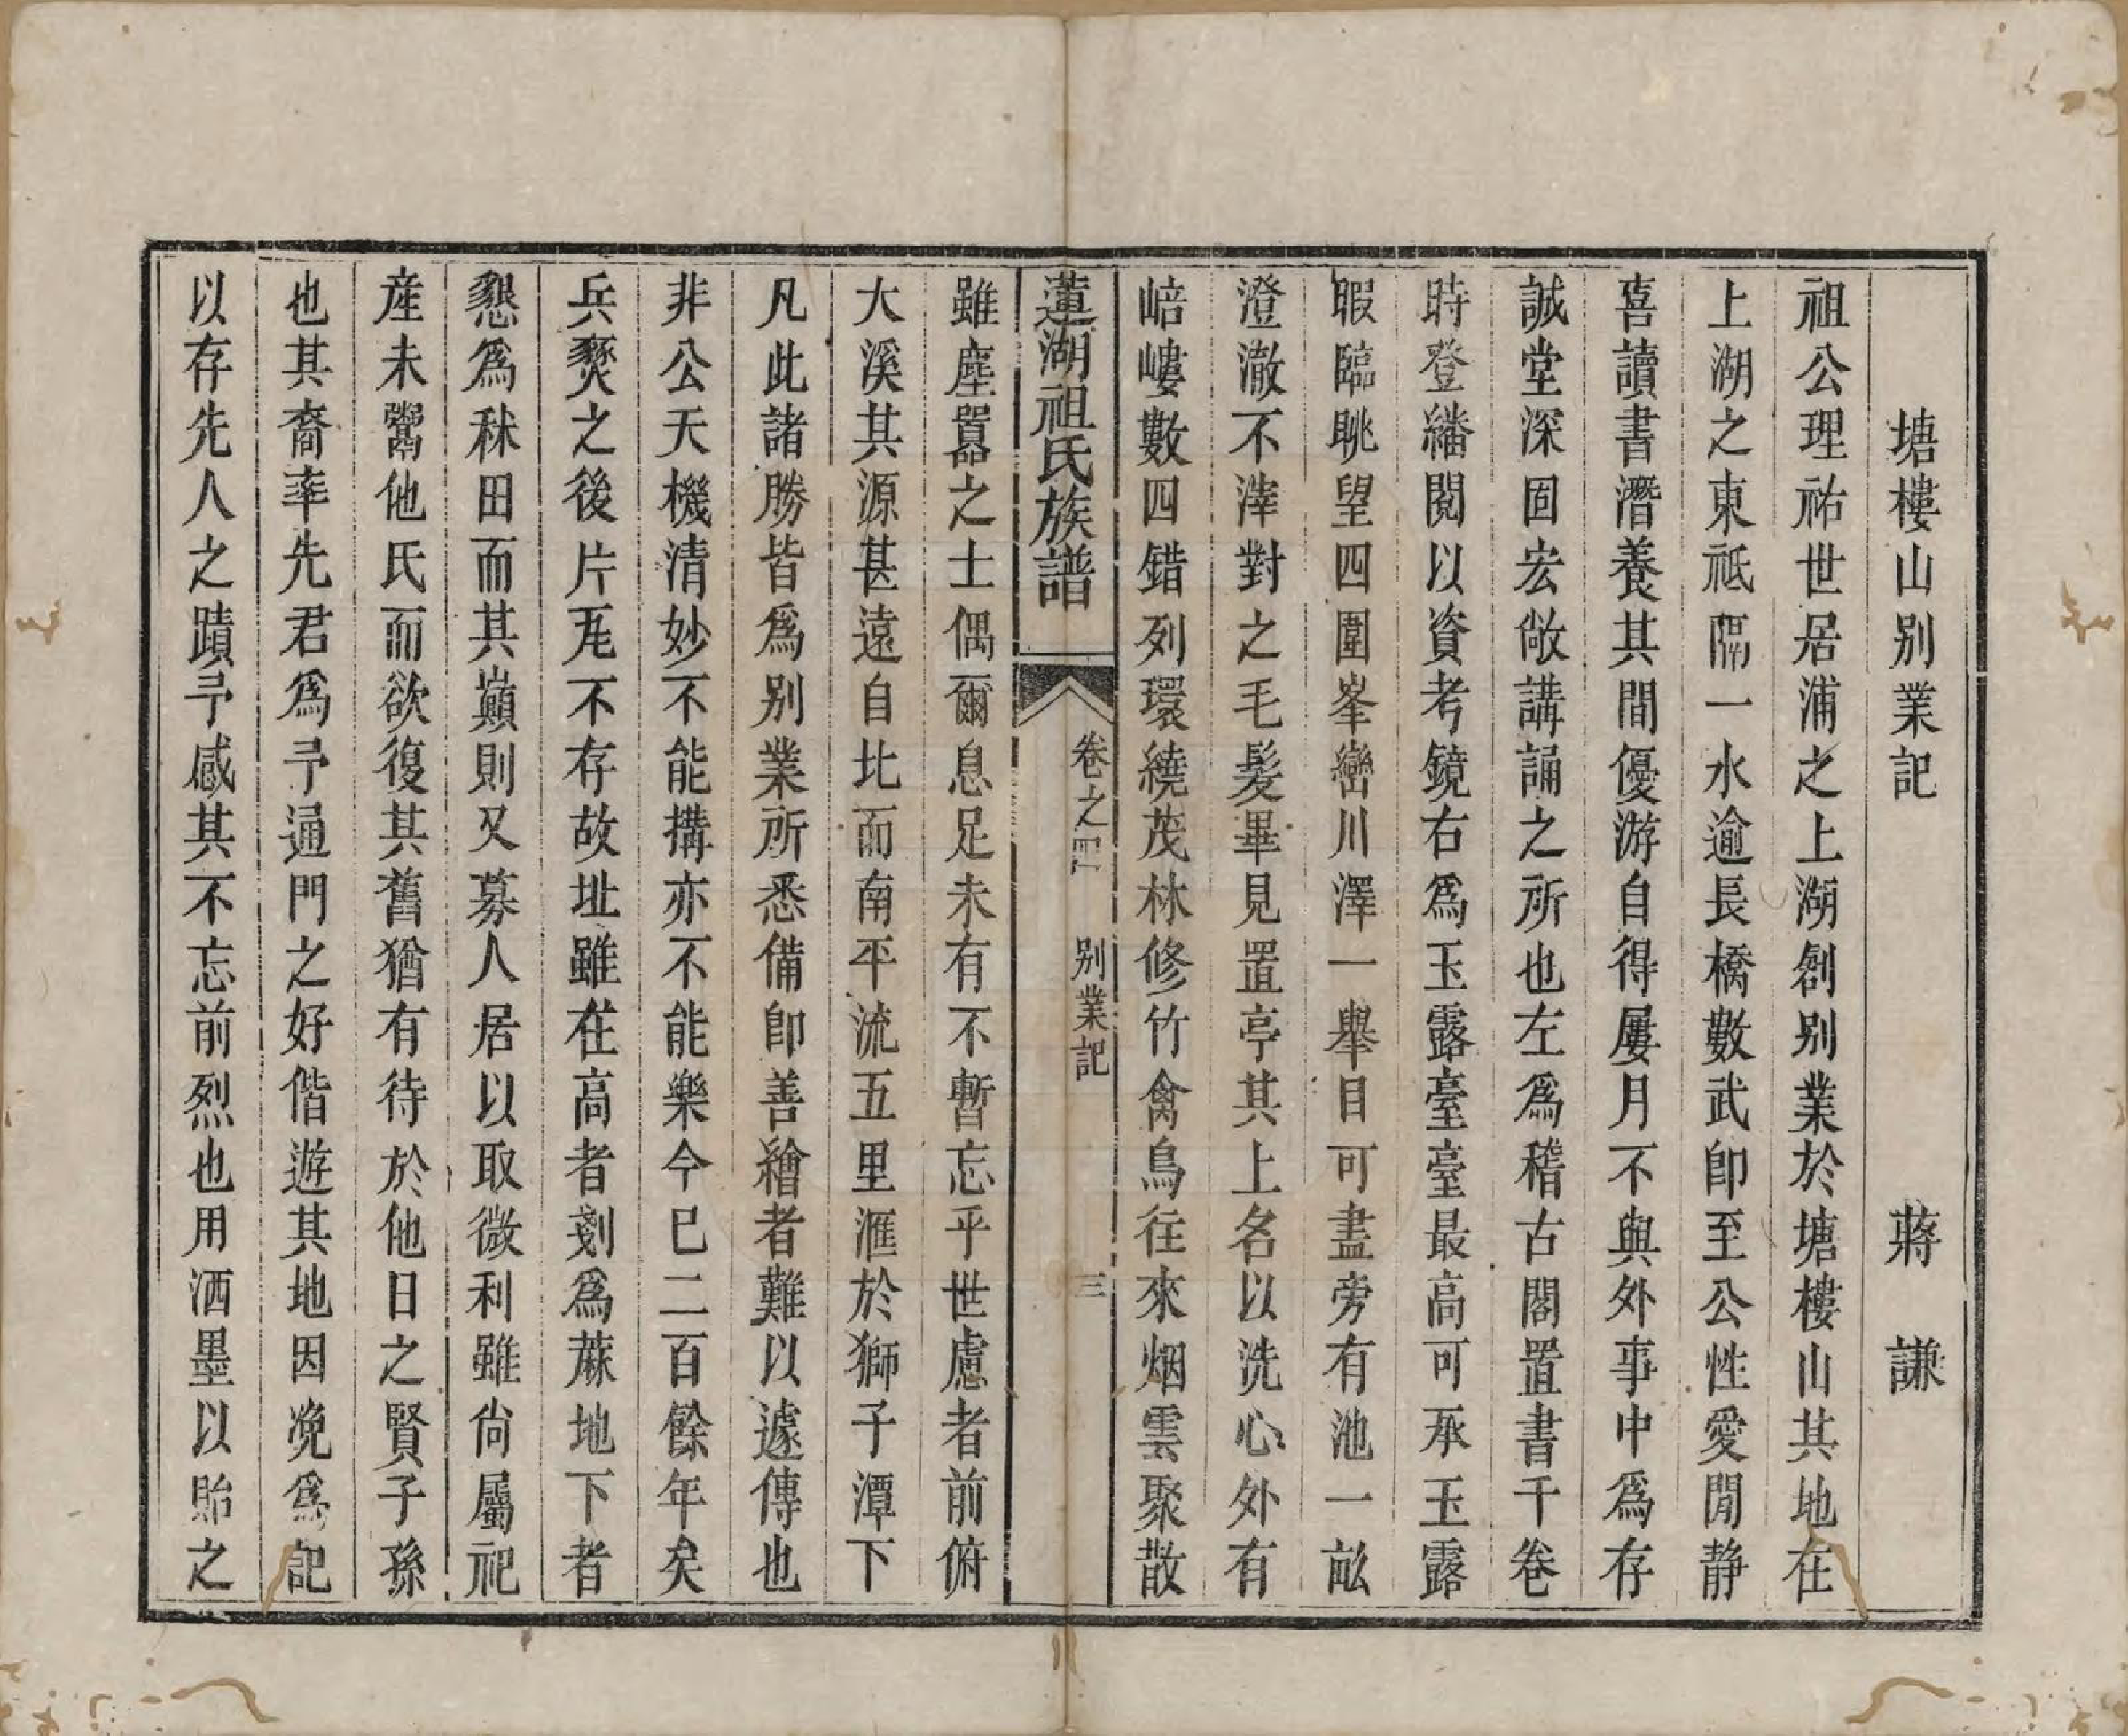 塘樓山别業記　蔣　謙
祖公理祐世居浦之上湖創别業於塘樓山其地在
上湖之東祗隔一水逾長橋數武即至公性愛閒静
喜讀書潛養其間優游自得屢月不與外事中爲存
誠堂深固宏敞講誦之所也左爲稽古閣置書千卷
時登繙閱以資考鏡右爲玉露臺臺最高可承玉露
暇臨眺望四圍峯巒川澤一舉目可盡旁有池一畝
澄澈不滓對之毛髮畢見置亭其上名以洗心外有
㟝嶁數四錯列環繞茂林修竹禽鳥往來烟雲聚散
蓮湖祖氏族譜　卷之四　别業記　三
雖塵囂之士偶爾息足未有不暫忘乎世慮者前俯
大溪其源甚遠自北而南平流五里滙於獅子潭下
凡此諸勝皆爲别業所悉備即善繪者難以遽傳也
非公天機清妙不能搆亦不能樂今巳二百餘年矣
兵燹之後片瓦不存故址雖在高者剗爲蔴地下者
懇爲秫田而其巔則又募人居以取微利雖尙屬祀
產未鬻他氏而欲復其舊猶有待於他日之賢子孫
也其裔率先君爲予通門之好偕遊其地因浼爲記
以存先人之蹟予感其不忘前烈也用洒墨以貽之